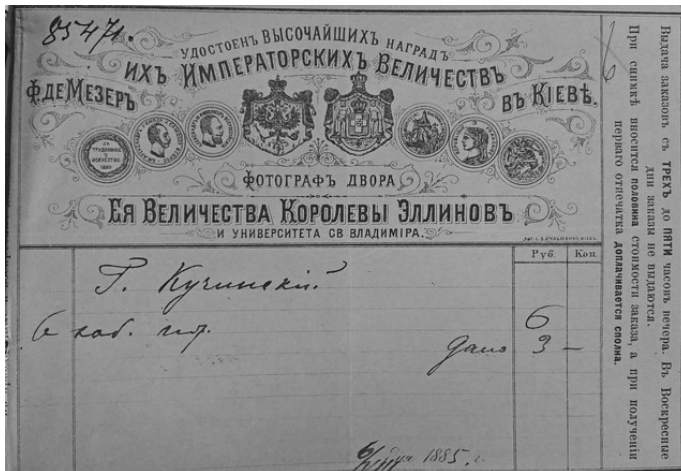 85471.
УДОСТОЕНЪ ВЫСОЧАЙШИХЪ НАГРАДЪ
ИХЪ ИМПЕРАТОРСКИХЪ ВЕЛИЧЕСТВЪ
Ф ДЕ МЕЗЕРЪ
ВЪ КІЕВѢ.
ЗА ТРУДОЛЮБІЕ И ИСКУССТВО
ФОТОГРАФЪ ДВОРА
ЕЯ ВЕЛИЧЕСТВА КОРОЛЕВЫ ЭЛЛИНОВЪ
И УНИВЕРСИТЕТА СВ ВЛАДИМІРА.
Руб. Коп
Г. Кучинскій.
6 каб. 6
дано 3 —
1885. г.
Выдача заказовъ съ ТРЕХЪ до ПЯТИ часовъ вечера. Въ Воскресные
дни заказы не выдаются.
При снимкѣ вносится ПОЛОВИНА стоимости заказа, а при полученіи
перваго отпечатка ДОПЛАЧИВАЕТСЯ СПОЛНА.